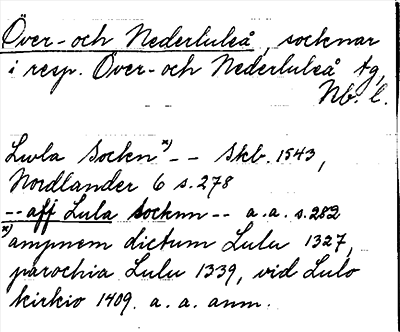 Över- och Nederluleå, socknar
i resp. Över- och Nederluleå tg,
Nb. l.
Lwla Sockn x) -- Skb. 1543,
Nordlander 6 s. 278
-- aff Lula socknn -- a.a. s. 282
x) ampnem dictum Lulu 1327,
parochia Lulu 1339, vid Lulo
kirkio 1409. a. a. anm.